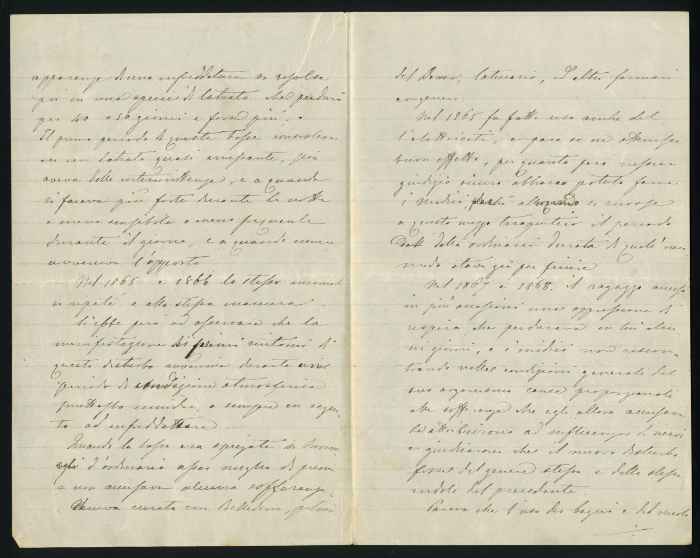 apparenze di una infreddatura si risolse
poi in una specie di latrato che perdurò
per 40 o 50 giorni e forse più.
Il primo periodo di queste tosse consisteva
in un latrato quasi incessante, poi
aveva delle intermittenze, e a quando
si faceva più forte durante la notte
e meno sensibile o meno frequente
durante il giorno, e a quando invece
avveniva l'opposto
Nel 1865 e 1866 lo stesso incomodo
si ripeté e allo stessa maniera
Si ebbe però ad osservare che la
manifestazione dei primi sintomi di
questo disturbo avveniva durante un
periodo di condizione atmosferica
piuttosto umida, e sempre in seguito
ad infreddatture
Quando la tosse era spiegata si trovava
egli d'ordinario assai meglio di prima
e non accusava alcuna sofferenza
Veniva curato con Belladonna, polveri
del Dower, latucario, ed altri farmaci
congeneri
Nel 1865 fu fatto uso anche del
l'elettricità, e parve se ne ottenesse
buon effetto, per quanto però nessun
giudizio sicuro abbiano potuto farne
i medici perché allorquando si ricorse
a questo mezzo terapeutico il periodo
della ordinaria durata di quell'inco
modo stava già per finire
Nel 1867 e 1868 il ragazzo accusò
in più occasioni una oppressione di
respiro che perdurava in lui alcu
ni giorni, e i medici non riscon
trando nelle condizioni generali del
suo organismo cause proporzionali
alle sofferenze che egli allora accusava
le attribuirono ad influenza di nervi
e giudicarono che il nuovo disturbo
fosse del genere stesso e della stessa
indole del precedente.
Pareva che l'uso dei bagni e del nuoto